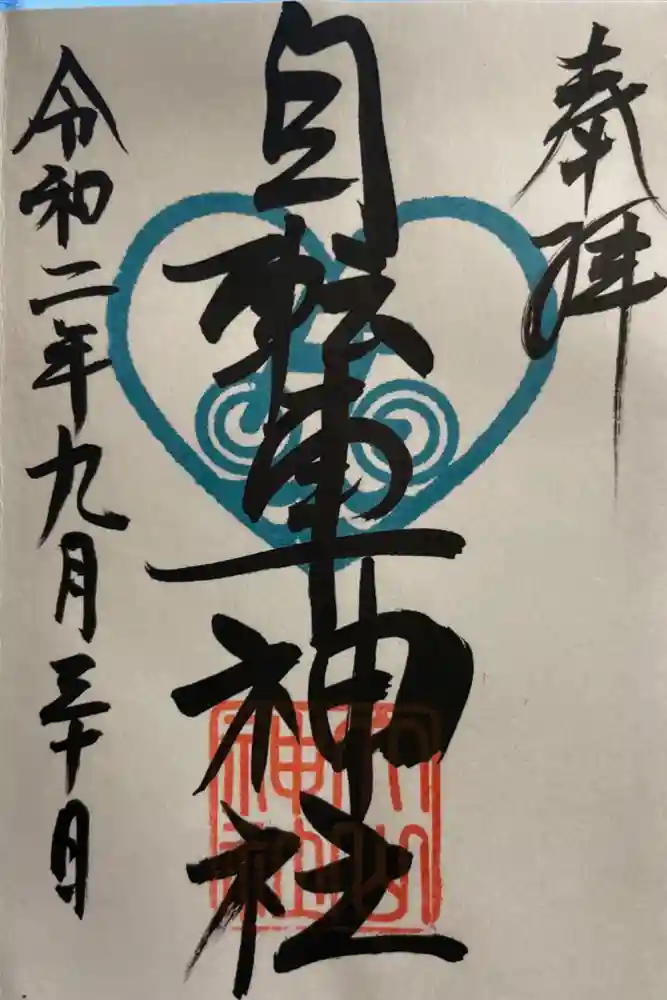 奉拝
自転車神社
令和二年九月三十日